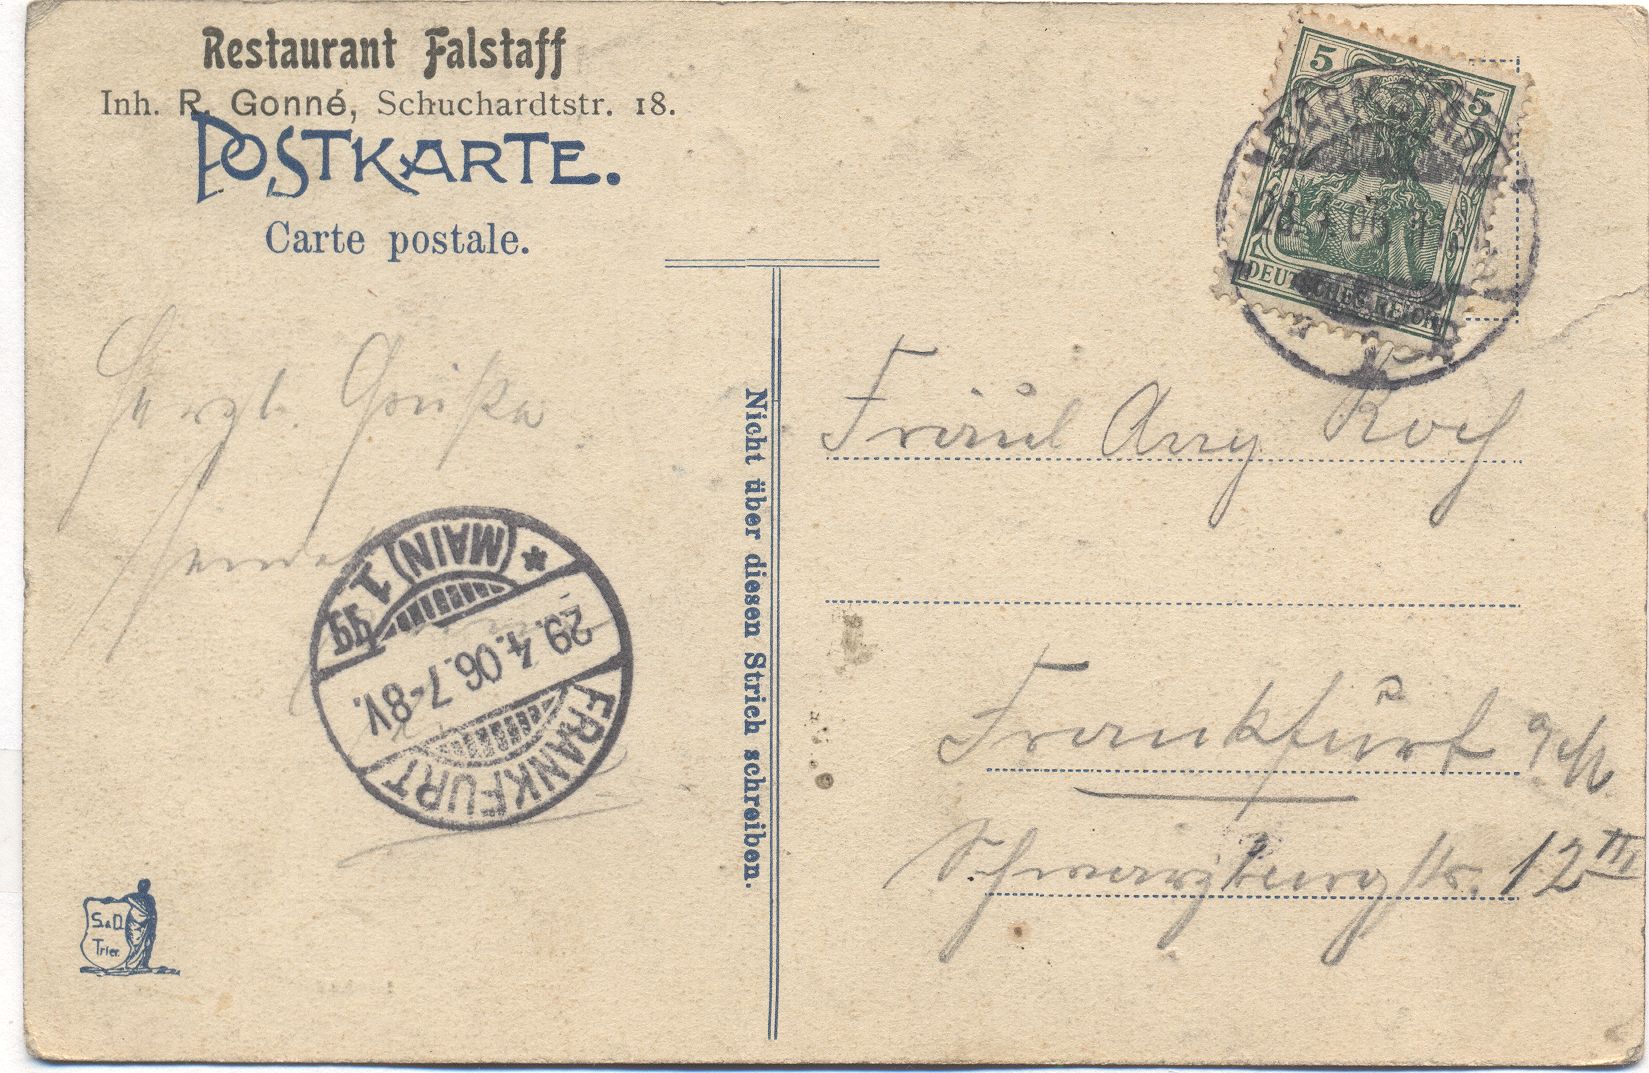 Restaurant Falstaff
Inh. R. Gonné, Schuchardtstr. 18.
POSTKARTE.
Carte postale.
5 5
DARMSTADT
28.4.06
DEUTSCHES REICH
Herzl. Grüße
sendet
FRANKFURT
29.4.06.7-8V.
(MAIN) 1
*
Nicht über diesen Strich schreiben.
Fräul Anny Koch
Frankfurt a/M
Schwarzburgstr. 12 III
S. & D.
Trier